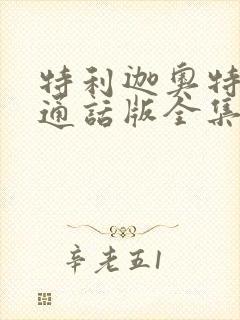 特利迦奥特
通話版全集
辛老五1